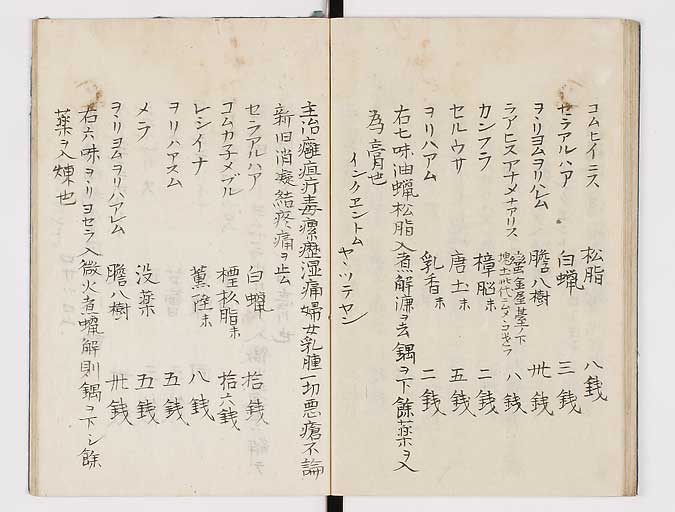 コムヒイニス 松脂 八銭
セラアルハア 白蝋 三銭
ヲリヨムヲリハレム 膽八樹 卅銭
ラアヒスアナメナアリス 八銭
カンフラ 樟脳末 二銭
セルウサ 唐土末 五銭
ヲリハアム 乳香末 二銭
右七味油蝋松脂入煮解漉ヲ去鍋ヲ下餘薬ヲ入
為膏也
インクエントム ヤンツテヤン
主治癰疽疔毒瘰癧湿痛婦女乳腫一切悪瘡不論
新旧消凝結疼痛ヲ止
セラアルハア 白蝋 拾銭
コムカ子メブル 樫松脂末 拾六銭
レシイナ 薫陸末 八銭
ヲリハアスム 五銭
メラ 没薬 五銭
ヲリヨムヲリハアレム 膽八樹 卅銭
右六味ヲリヨセラ入微火煮蝋解則鍋ヲ下シ餘
薬ヲ入煉也